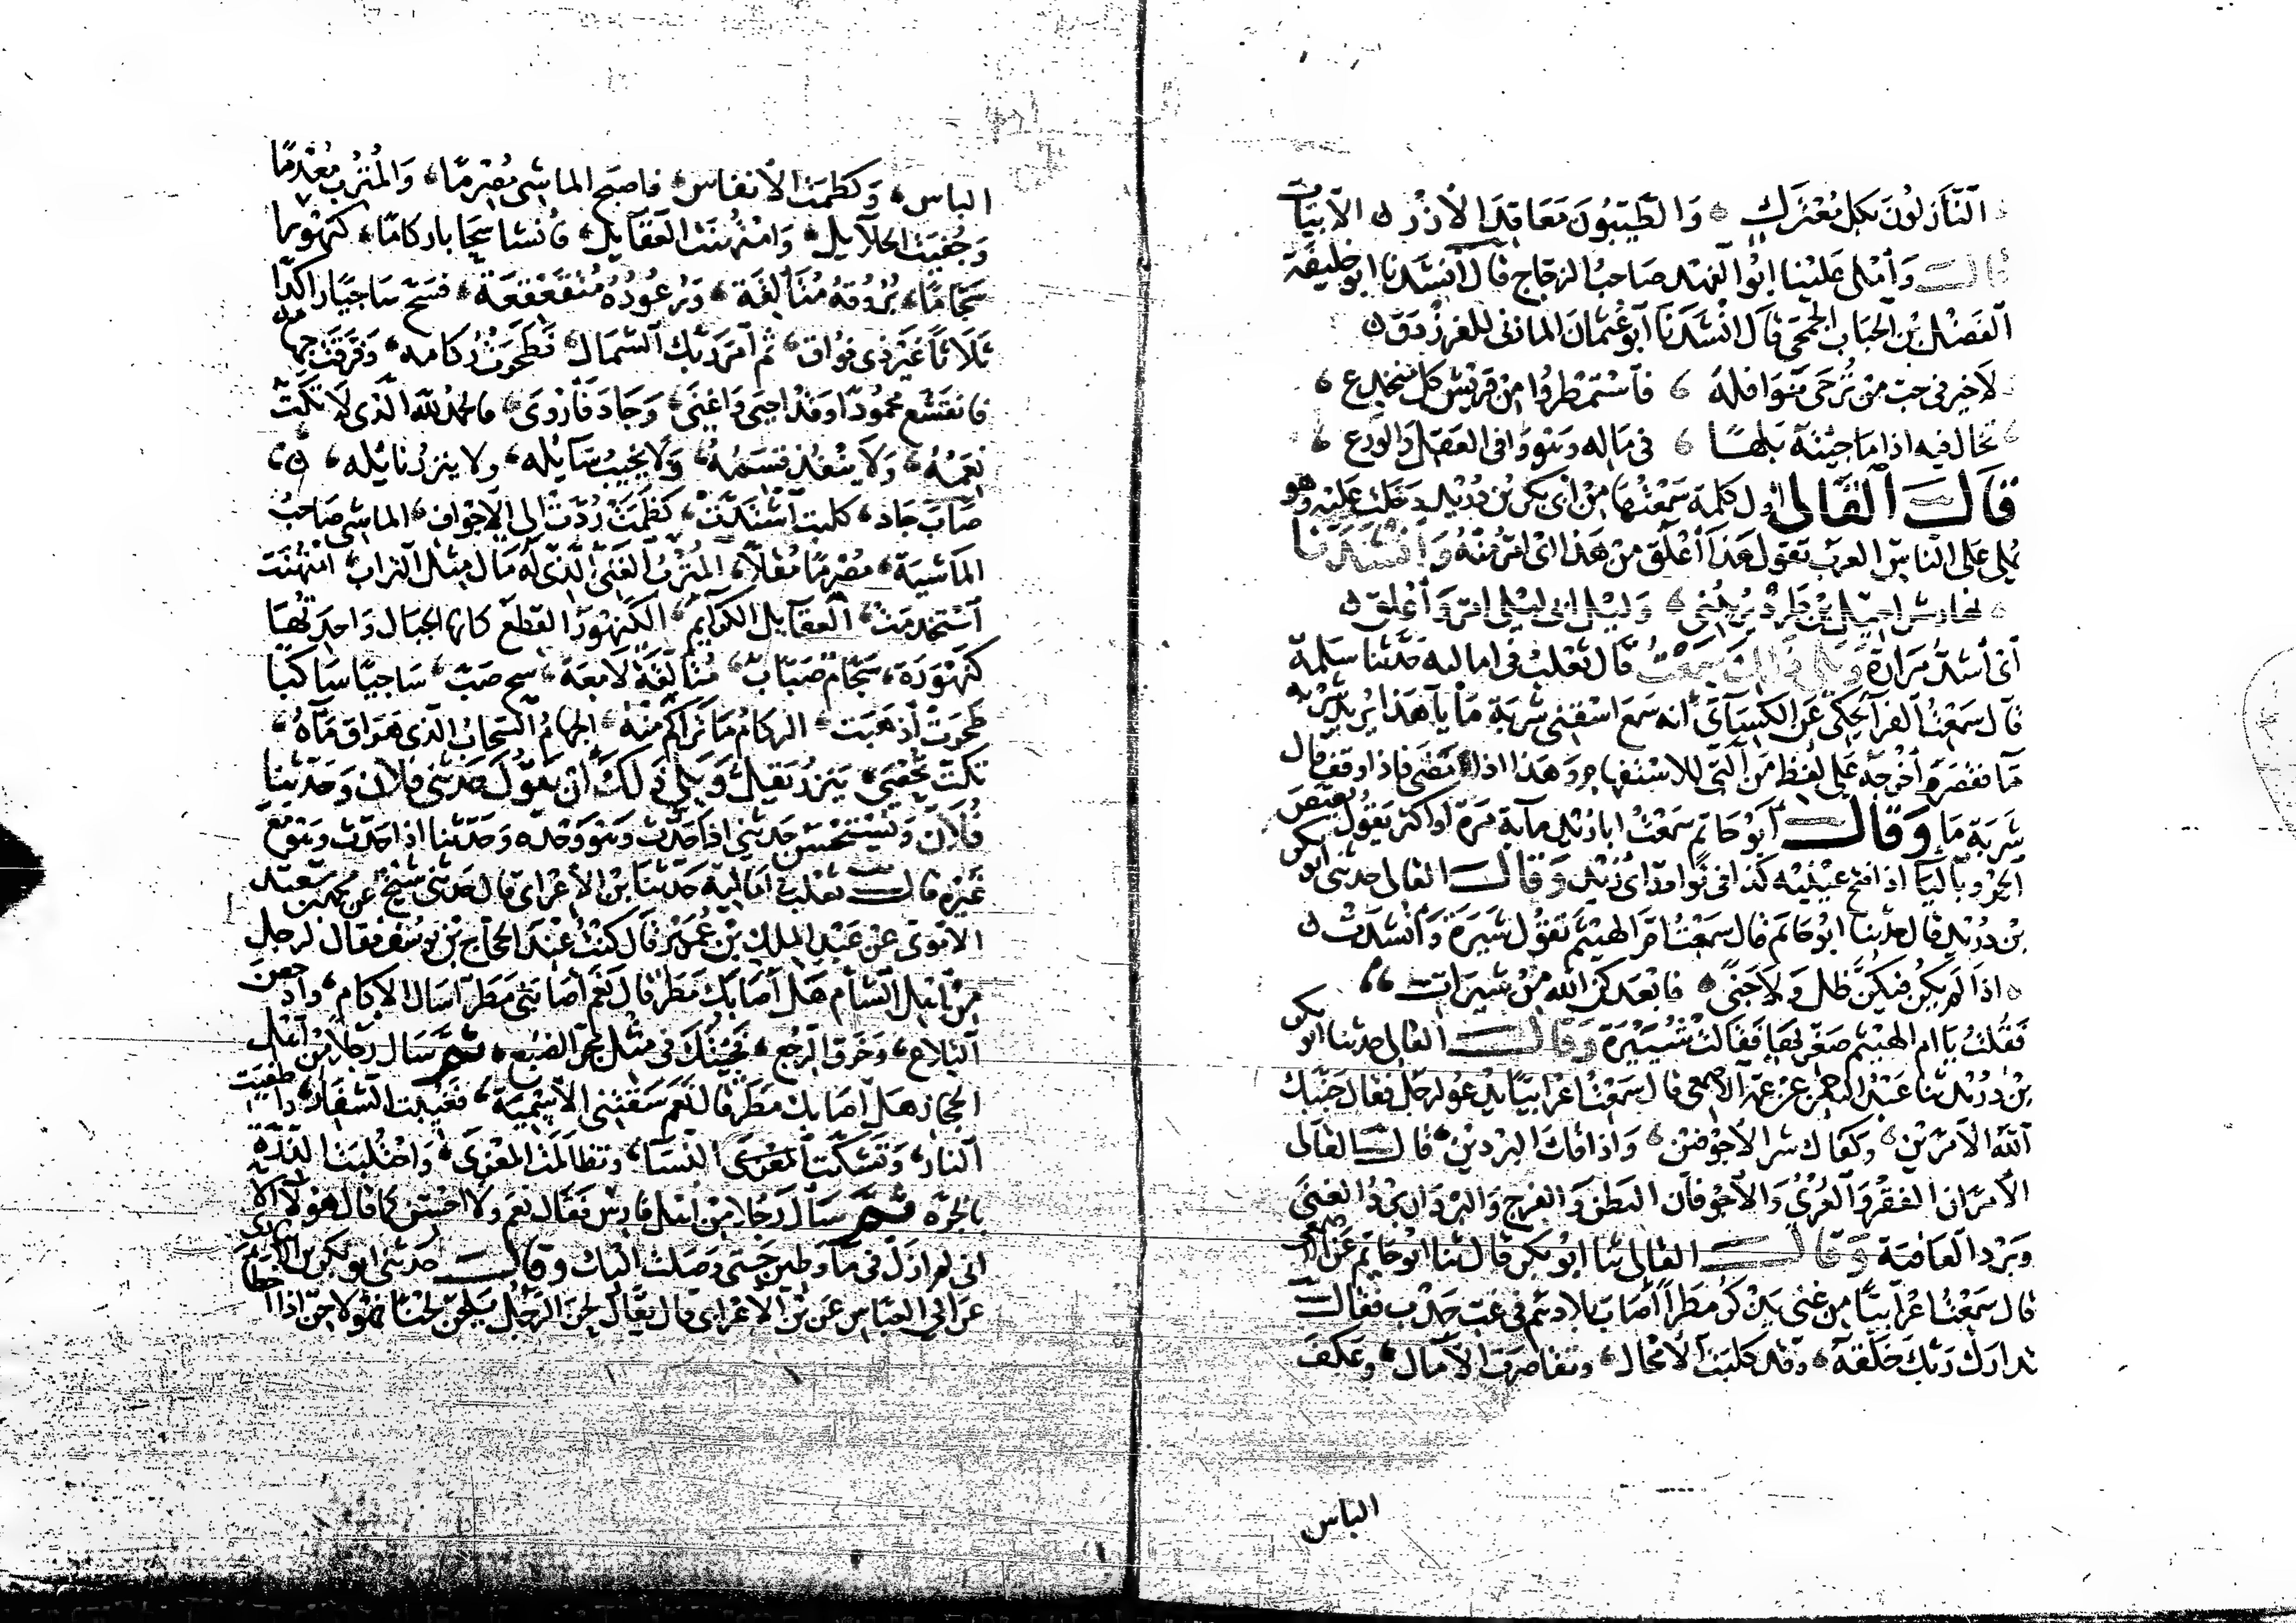 النَّازلُونَ بكل مُعْتَركٍ وَالطَّيّبُونَ مَعَاقِدَ الأزْرِ الأبيَات
قالـــ وَأمْلى عَلَيْنا ابُو الفهد صَاحبُ الزجّاج قال أنشدنا ابو خليفة
الفَضْل بْن الحبَاب الجُمَحى قال انشَدَنَا أبو عُثمانَ المازنى للفرزدق
لاخير فى حب مَنْ تُرْجَى نَوَافلهُ فَاسْتَمْطِرُوا مِنْ قريش كل منخدع
تخال فيه اذا مَا جئتَهُ بَلَهًا فى مَاله وَهْوَ وَافى العَقل وَالوَرَع
قَالَـــ القَالى اول كلمة سَمْعتُها مِنْ ابى بكر بْن دُرَيْد دَخلت عَليْهِ وَهو
يُملى على النَاس العرب تقول هَذا أعْلَق مِنْ هَذا اى امَرُّ منْهُ وَأنشَدَنَا
وَلَيْل ابى ليْلى امَرّ وَأعْلَق
أىْ أشدُّ مَرَارَة قَال ثعْلب فى اماليه حَدّثنا سَلمة
قال سَمعْتُ الفرآ يحكى عَن الكِسَائىّ انه سَمعَ اسْقنى شَربَة مَا يَا هَذا يُريد شربَة
مآ فقصَرَ وأخرجَه على لفظ مَن التى للاسْتفهام وَهَذا اذا مَضَى فاذا وقفَ قال
شَربَة مَا وَقَالـــ أبُو حَاتم سَمعتُ ابا زيْد مآية مَرة أو اكثر يَقُول
الجَرْو باليَا اذا فتح عينيه كذا فى نوادر أبى زيْد وَقالـــ القالى حدثنى ابو بكر
بْن دُرَيْد قال حدّثنا ابُو حَاتم قال سَمْعتُ امّ الهيْثَم تقُول شيَرَة وَأنشدتْ
اذا لم يَكن فيكنَّ ظل ولا جَنًى فابعدكنّ الله مِنْ شيَرَات
فقلتُ يَا ام الهيْثم صَغّريهَا فقالتْ شُيَيْرَة وَقالـــ القالى حدثنا ابو بكر
بْن دُرَيْد ثنا عَبْد الرحمن عَنْ عمّه الاصْمعى قال سَمعتُ اعرابيًا يدْعُو لرجل فقال جَنّبَك
الله الأمَرّيْن وكفاك شر الأجوَفيْن وأذاقك البرْدَيْن قالـــ القالى
الأمَرّان الفَقْر وَالعُرْيُ وَالأجْوفان البَطْن وَالفرج وَالبَردَان بَرْدُ الغِنَى
وَبَرْد العَافيَة وَقالـــ القالى ثنا ابُو بكر قال ثنا ابُو حَاتم عَن الاصمعى
قال سَمعْتُ اعْرابيًّا مِن غنى يَذْكر مَطَرا أصَابَ بلادهُمْ فى غبّ جَدْب فقالـــ
تدارك رَبك خَلْقَهُ وَقد كلبَت الأمحَال وتقاصَرَت الآمَال وَعَكفَ
الباس
الباس وَكَظَمَت الأنفاس فاصبَح الماشى مُصْرمًا وَالمُتْرب مُعْدمًا
وَجُفيَت الحلايل وَامْتُهِنَت العَقايل فانشا سَحابا ركامًا كَنَهْورا
سَجّامًا بُرُوقهُ مُتَألقة وَرُعُودُهُ مُتَقَعْقعَة فسَحَّ سَاجيًا راكدًا
ثلاثا غيْرَ ذى فوَاق ثم أمَرَ ربّك الشمَال فطحَرَتْ ركامه وَفرّقَتْ جهامه
فانقشَع محمُودًا وقد احيَى وَاغنَى وَجَادَ فَأرْوَى فالحمد لله الذى لا تكَتّ
نعَمُهُ وَلا تنفَدُ قِسَمُهُ وَلا يخيبُ سَايله ولا ينزُر نايله
صَابَ جَاد كلبت اشتدّتْ كظمَتْ رُدّتْ الى الاجْوَاف الماشى صَاحبُ
المَاشيَة مُصْرمًا مُقلاًّ المُتْربُ الغَنىّ الذى له مَال مثْل التراب امْتُهنَت
اسْتُخدمَتْ العَقَايل الكَرايم الكَنَهْوَرُ القطَع كانها الجبَال وَاحدَتُهَا
كَنَهْوَرَة سَجّام صَبَّاب مُتألقَة لامعَة سح صَبّ سَاجيًا سَاكنا
طحَرَتْ أذهَبَت الركَامُ مَا تراكم منْه الجهَامُ السّحابُ الذى هَرَاقَ مَآءَهُ
تكتّ تُحْصَى يَنزرُ يَقل وَيَلى ذلكَ أنْ يَقُول حَدثنى فلان وَحَدّثنا
فُلان وَيُسْتَحْسَن حَدثنى اذا حَدّثَ وَهْوَ وَحْدَه وَحَدّثنا اذا حَدّث وَهْوَ مَعَ
غَيْره قالـــ ثعْلب اماليه حَدّثنا ابْن الأعْرابى قال حَدّثنى شَيْخ عَن محمد بْن سَعيد
الأمَوى عَنْ عَبْد المَلك بْن عُمَيْر قال كنتُ عنْدَ الحَجّاج بْن يوسُف فقال لرجل
مِنْ أهْل الشام هَلْ أصَابَكَ مَطَر قال نَعَمْ أصَابَنى مَطَر أسَال الإكام وَأدْحَضَ
التلاع وَخَرَق الرَجْع فجئتكَ فى مثْل مَجَرّ الضبُع ثم سَال رَجُلا مِنْ أهْل
الحجَاز هَل أصَابكَ مَطَر قال نعَم سَقتْنى الأسْميَة فغُيّبَت الشفَار وأطفيَت
النار وَتَشَكّت النّسَا وتظالَمَت المعْزَى وَاحْتُلبَت الدرّة
بالجرّة ثم سَأل رَجُلا مِنْ أهْل فارسْ فقَال نعَم وَلا أحْسن كما قال هَؤلآء الا
انى لم ازَل فى مَآء وَطِين حَتى وَصَلتُ اليْك وَقَالـــ حَدثنى ابُو بكر بْن الانبارى
عَن ابى العَبّاس عَن بْن الأعْرابى قال يُقَال لحَنَ الرجُل يَلحَن لَحْنًا فهْوَ لاحِن اذا أخطأ